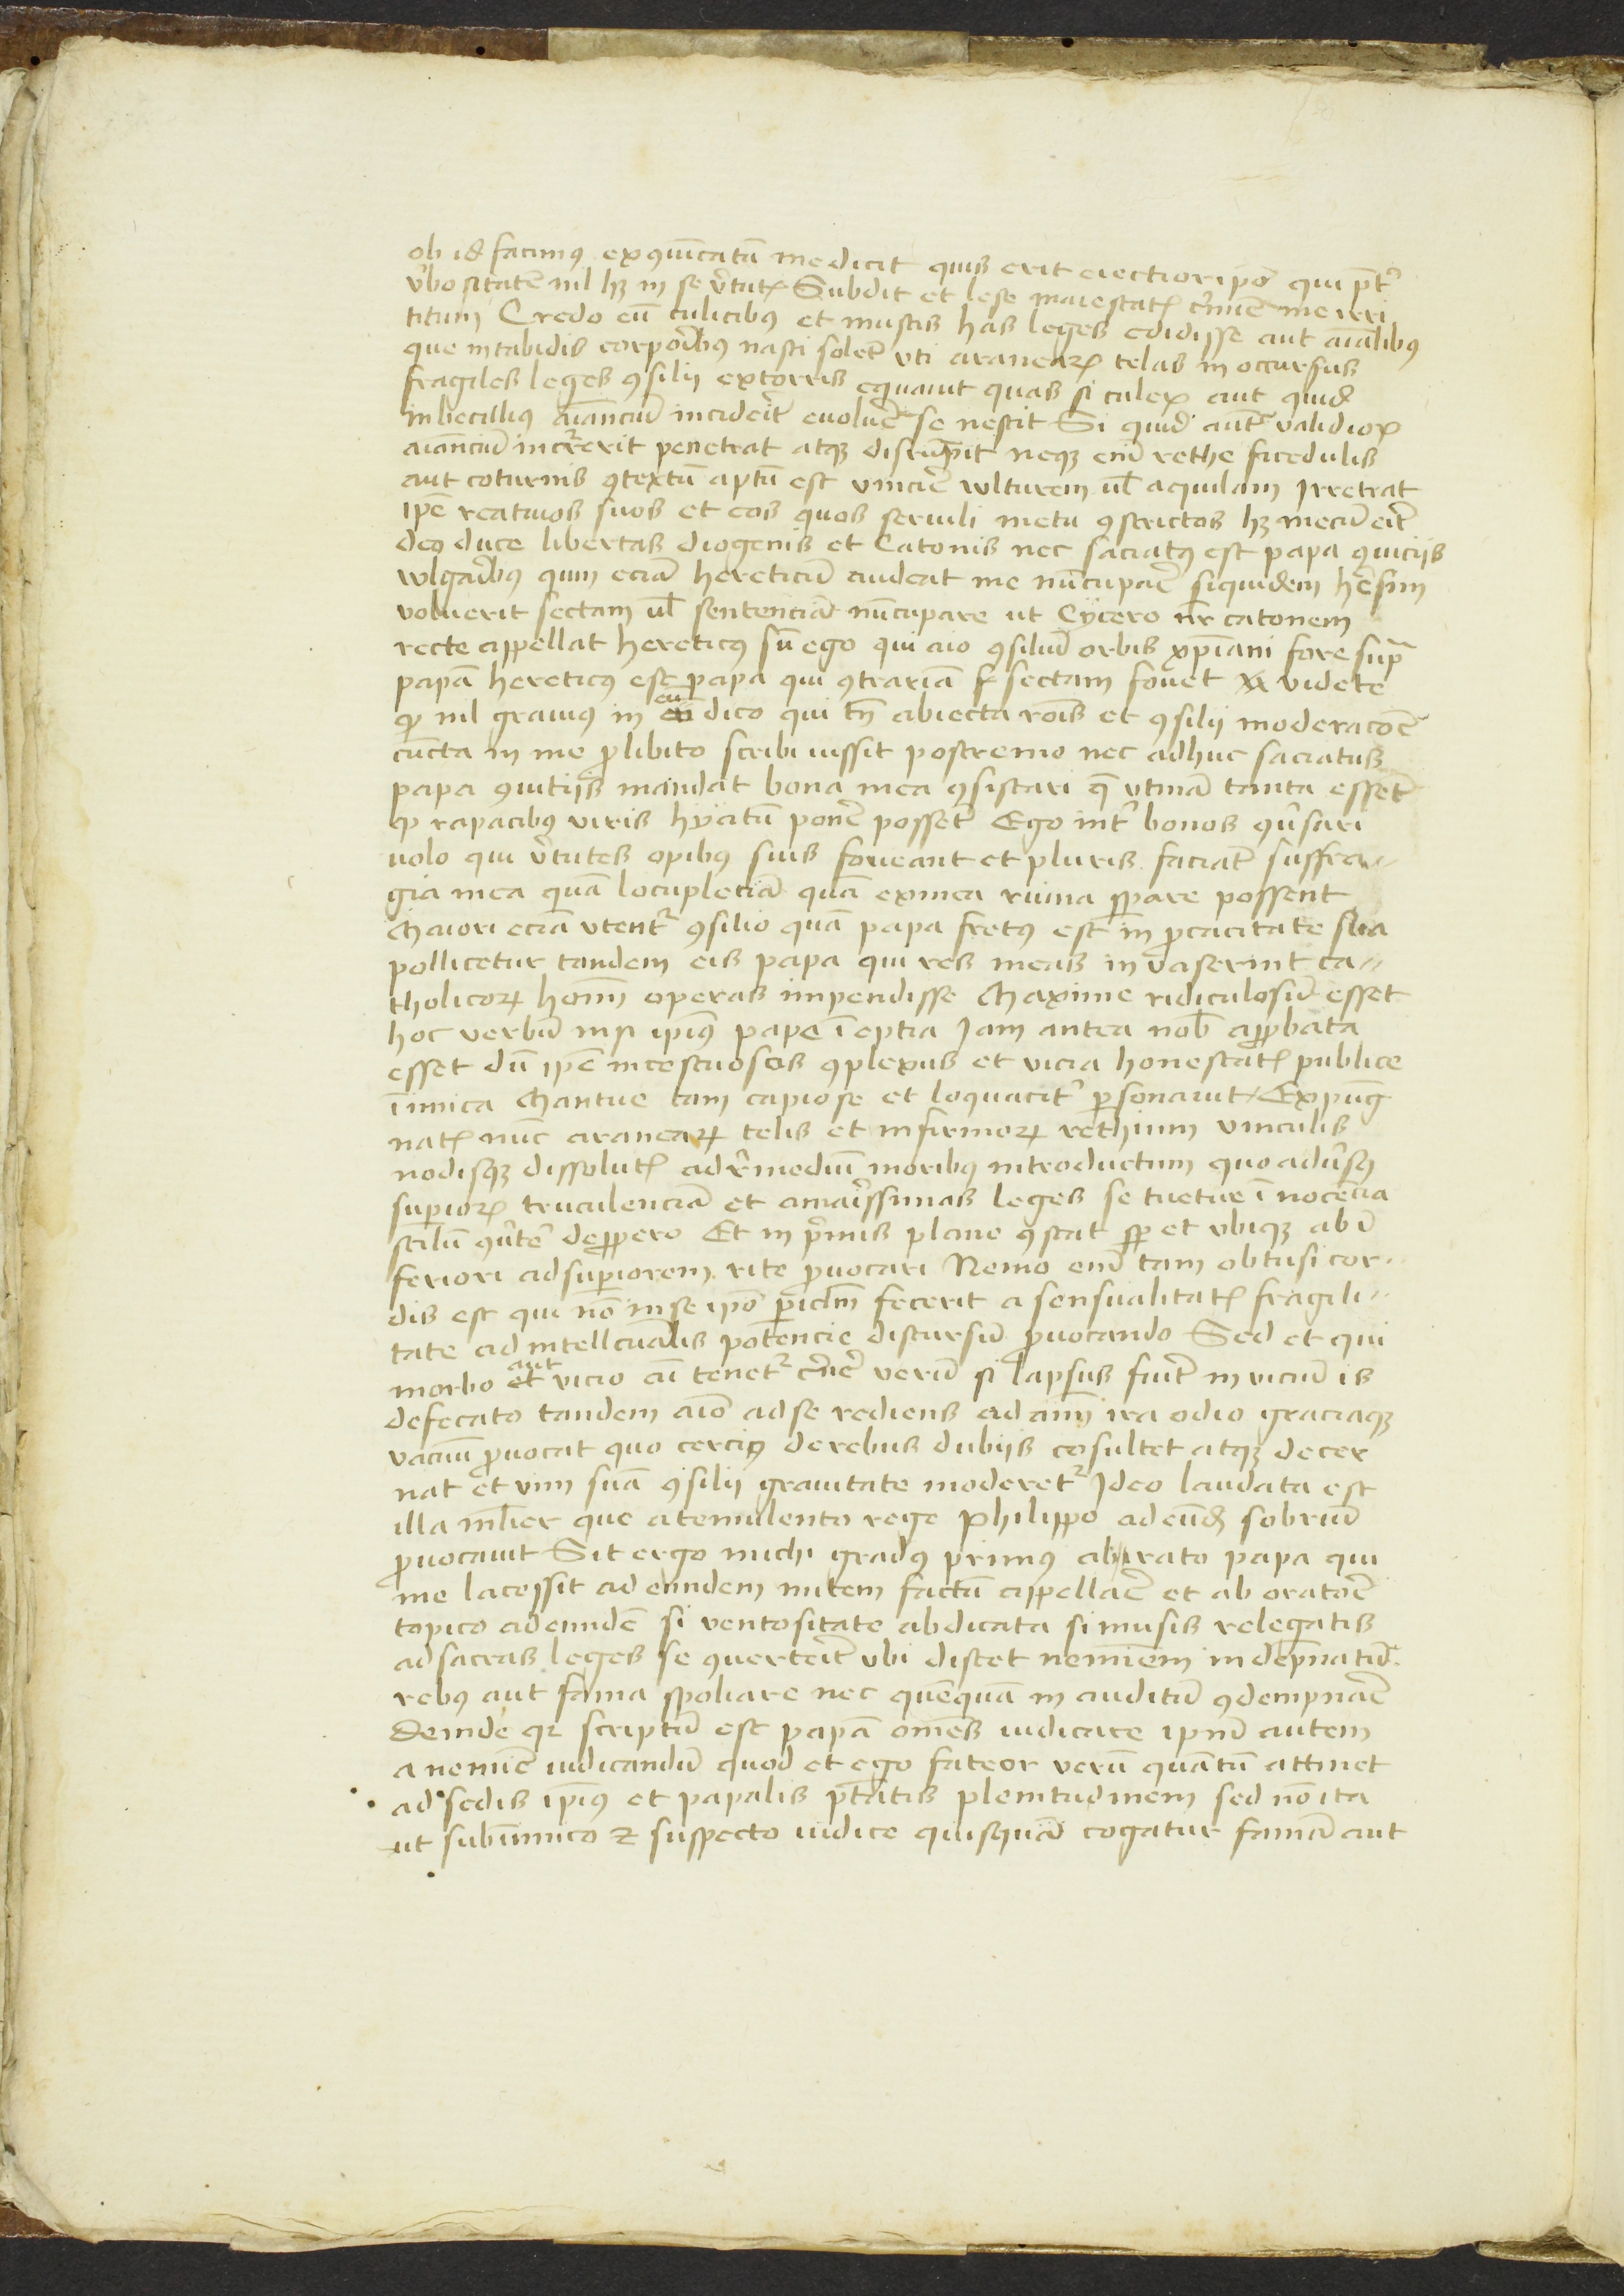 ob id facimꝰ exꝯuīcatū me dicit quis erit eiectior ipō qui ꝓpt̄
v̓bositatē nil hꝫ in se v̓tutꝭ Subdit et lese maiestatꝭ c̓mīe me irri
titum Credo eū culicibꝰ et muscis has leges edidisse aut aīalibꝰ
que in tabidis corpor̄ibꝰ nasci solēt vti aranearꝝ telas in occursus
fragiles leges ꝯsilij extorris equauit quas si culex aut quid
inbecillius aīanciū incideīt euolue̓ se nescit Si quid aut̄ validioꝝ
aīanciū incr̓rerit penetrat atqꝫ disrūpit neqꝫ enī rethe ficedulis
aut coturnis ꝯtextū aptū est vincie̓ wlturem ul̄ aquilam Irretiat
ip̄e reatiuos suos et eos quos seruili metu ꝯstrictos hꝫ mecū eīt
deo duce libertas diogenis et Catonis nec saciatꝰ est papa ꝯuicijs
wlgaribꝰ quin eciā hereticū audeat me nūcupae̓ siquidem he̓sim
voluerit sectam ul̄ sentenciā nūcupare ut Cycero nr̄ catonem
recte appellat hereticꝰ sū ego qui aio ꝯsiliū orbis xp̄iani fore sup̄
papā hereticꝰ est papa qui ꝯtrariā sectam fouet videte
qꝫ nil grauiꝰ in eū dico qui tn̄ abiecta rōis et ꝯsilij moderacōe̓
cūcta in me ꝓ libito scribi iussit postremo nec adhuc saciatus
papa ꝯuitijs mandat bona mea ꝯfiscari q̄ vtinā tanta essēt
qꝫ rapacibꝰ viris hyatū pone̓ possēt Ego int̓ bonos ꝯu̓sari
uolo qui v̓tutes opibꝰ suis foueant et pluris faciāt suffra-
gia mea quā locupletiā quā ex mea ruina sperare possent
Maiori eciā vtent̓ ꝯsilio quā papa fretꝰ est in ꝓcacitate sua
pollicetur tandem eis papa qui res meas in vaserint ca-
tholicorꝝ hom̄ operas impendisse Maxime ridiculosū esset
hoc verbū nisi ipiꝰ pape īeptia Jam antea nob̄ aꝓbata
esset dū ip̄e incestuosos ꝯplexus et vicia honestatꝭ publice
īimica Mantue tam capiose et loquacit̓ ꝑsonarut Expūg
natꝭ nūc aranearꝝ telis et infirmorꝝ rethium vinculis
nodisqꝫ dissolutꝭ ad r̓medium moribus introductum quo adu̓sꝰ
supiorꝝ truculenciā et amaīssimas leges se tuetur īnocēcia
scilꝫ ꝯu̓te̓ deꝓpero Et in p̓mis plane ꝯstat sꝑ et vbiqꝫ ab ī
feriori ad supiorem rite ꝓuocari Nemo enī tam obtusi cor-
dis est qui nō in se ipō ꝑiclm̄ fecerit a sensualitatꝭ fragili-
tate ad intell̄cualis potencie discursū ꝓuocando Sed et qui
morbo aut vicio aī tenet̓ c̓ne̓ verū si lapsus fuīt in viciū is
defecato tandem aīo ad se rediens ad aīm̄ ira odio graciaqꝫ
vacuū ꝓuocat quo cerciꝰ de rebus dubijs cōsultet atqꝫ decer
nat et vim suā ꝯsilij grauitate moderet̓ Ideo laudata est
illa ml̄ier que a temulento rege Philippo ad eūdē sobriū
ꝓuocauit Sit ergo michi gradꝰ primꝰ ab irato papa qui
me lacessit ad eundem mitem factū appellae̓ et ab oratoe̓
topico ad eundē si ventositate abdicata si musis relegatis
ad sacras leges se ꝯuerteīt vbi discet neminem in dep̄natū
rebꝰ aut fama spoliare nec quēquā in auditū ꝯdempnae̓
Deinde qꝛ scriptū est papā om̄es iudicare ipm̄ autem
a nemīe iudicandū quod et ego fateor verū quātū attinet
ad sedis ipiꝰ et papalis ptātis plenitudinem sed nō ita
ut sub inimico ⁊ suspecto iudice quisquā cogatur famā aut